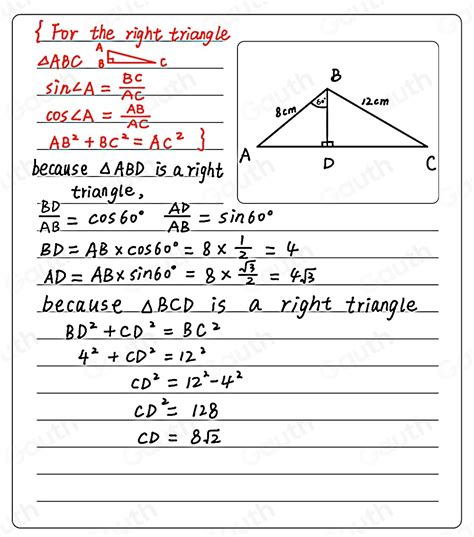 { For the right triangle
△ABC A B C
sin∠A = BC/AC
cos∠A = AB/AC
AB² + BC² = AC² }
B
8cm 60° 12cm
A D C
because △ABD is a right
triangle,
BD/AB = cos60° AD/AB = sin60°
BD = AB × cos60° = 8 × 1/2 = 4
AD = AB × sin60° = 8 × √3/2 = 4√3
because △BCD is a right triangle
BD² + CD² = BC²
4² + CD² = 12²
CD² = 12² - 4²
CD² = 128
CD = 8√2